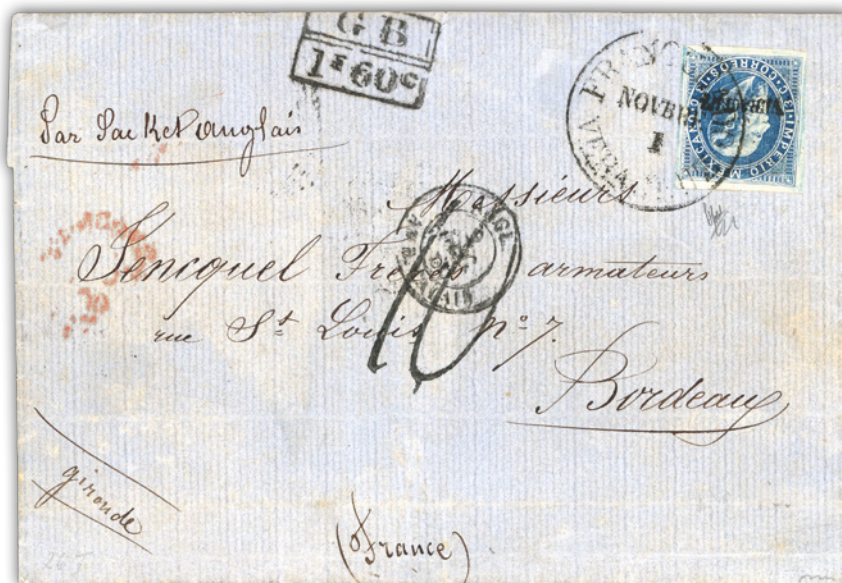 GB
1F60c
FRANCO
NOVBRE
1
VERA
IMPERIO MEXICANO
CORREOS 13 C
Par Packet anglais
Messieurs
Fencquel Frères armateurs
rue St Louis No 7.
Bordeaux
gironde
(France)